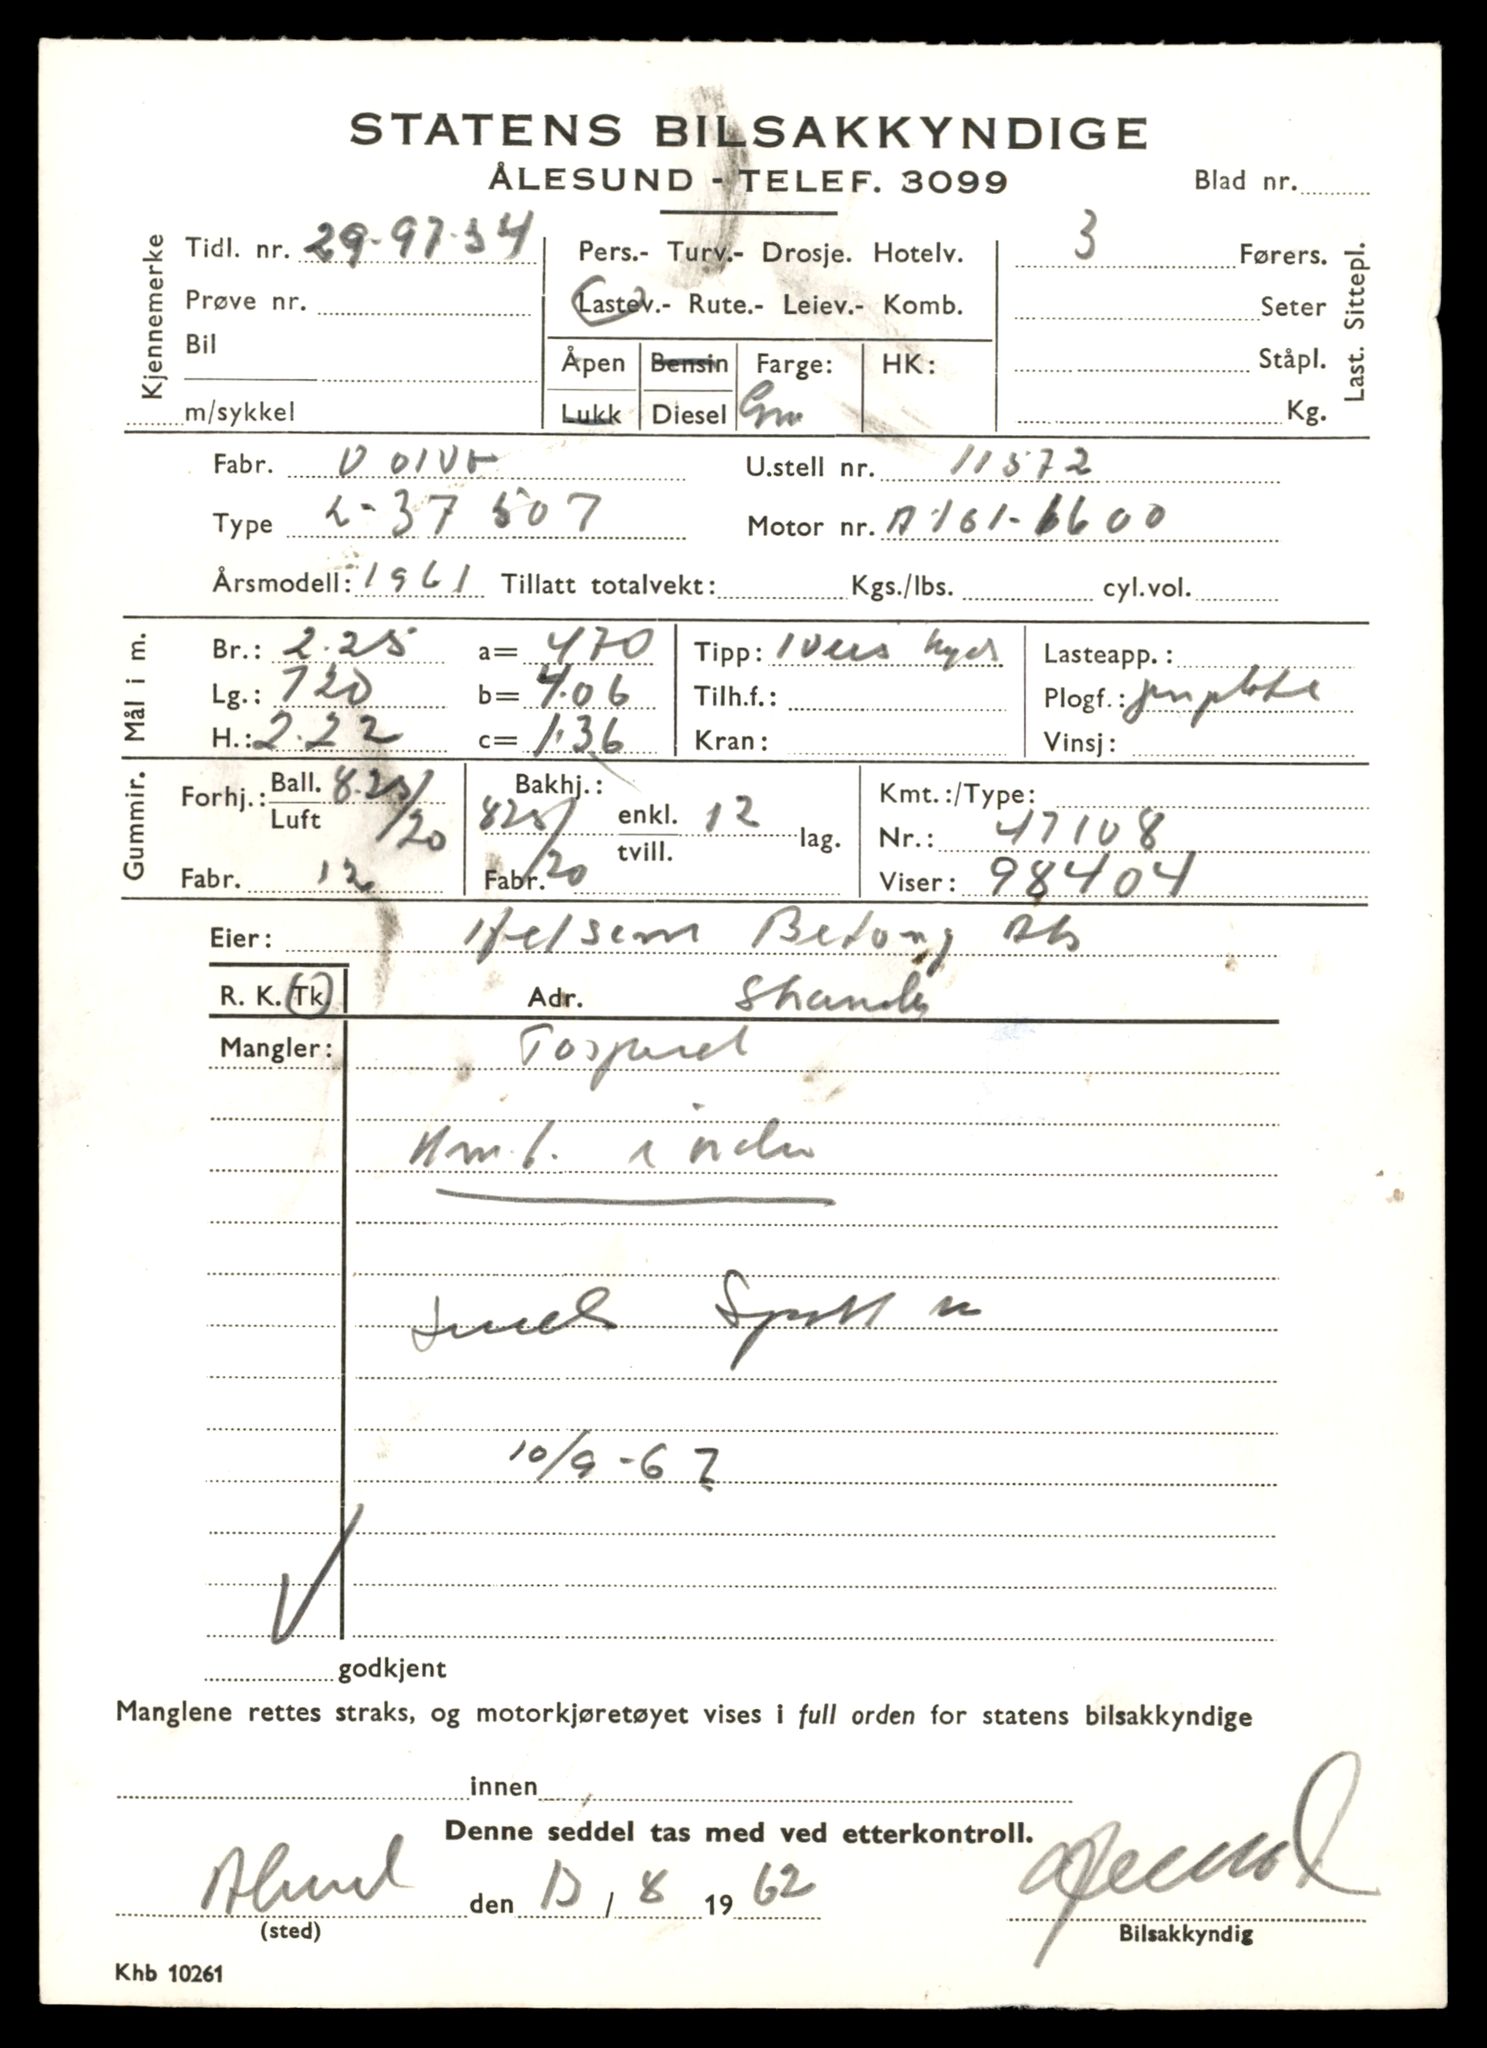 STATENS BILSAKKYNDIGE
ÅLESUND - TELEF. 3099
Blad nr.
Kjennemerke
Tidl. nr. 29-97-34
Prøve nr.
Bil
m/sykkel
Pers.- Turv.- Drosje. Hotelv.
Lastev.- Rute.- Leiev.- Komb.
Åpen Bensin Farge: HK:
Lukk Diesel Grn
3 Førers.
Seter
Ståpl.
Kg.
Last. Sittepl.
Fabr. Volvo U.stell nr. 11572
Type L-37 507 Motor nr. A161-6600
Årsmodell: 1961 Tillatt totalvekt: Kgs./lbs. cyl.vol.
Mål i m.
Br.: 2.25 a= 470 Tipp: 1veis hyd Lasteapp.:
Lg.: 720 b= 4.06 Tilh.f.: Plogf.:
H.: 2.22 c= 1.36 Kran: Vinsj:
Gummir.
Forhj.: Ball. 8.25/20 Luft
Fabr. 12
Bakhj.: 825/20 enkl. tvill. 12 lag.
Fabr.
Kmt.:/Type:
Nr.: 47108
Viser: 98404
Eier: Betong A/s
R. K. Tk. Adr. Stranda
Mangler:
i orden
10/9-62
godkjent
Manglene rettes straks, og motorkjøretøyet vises i full orden for statens bilsakkyndige
innen
Denne seddel tas med ved etterkontroll.
Ålesund den 13/8 1962
(sted)
Bilsakkyndig
Khb 10261